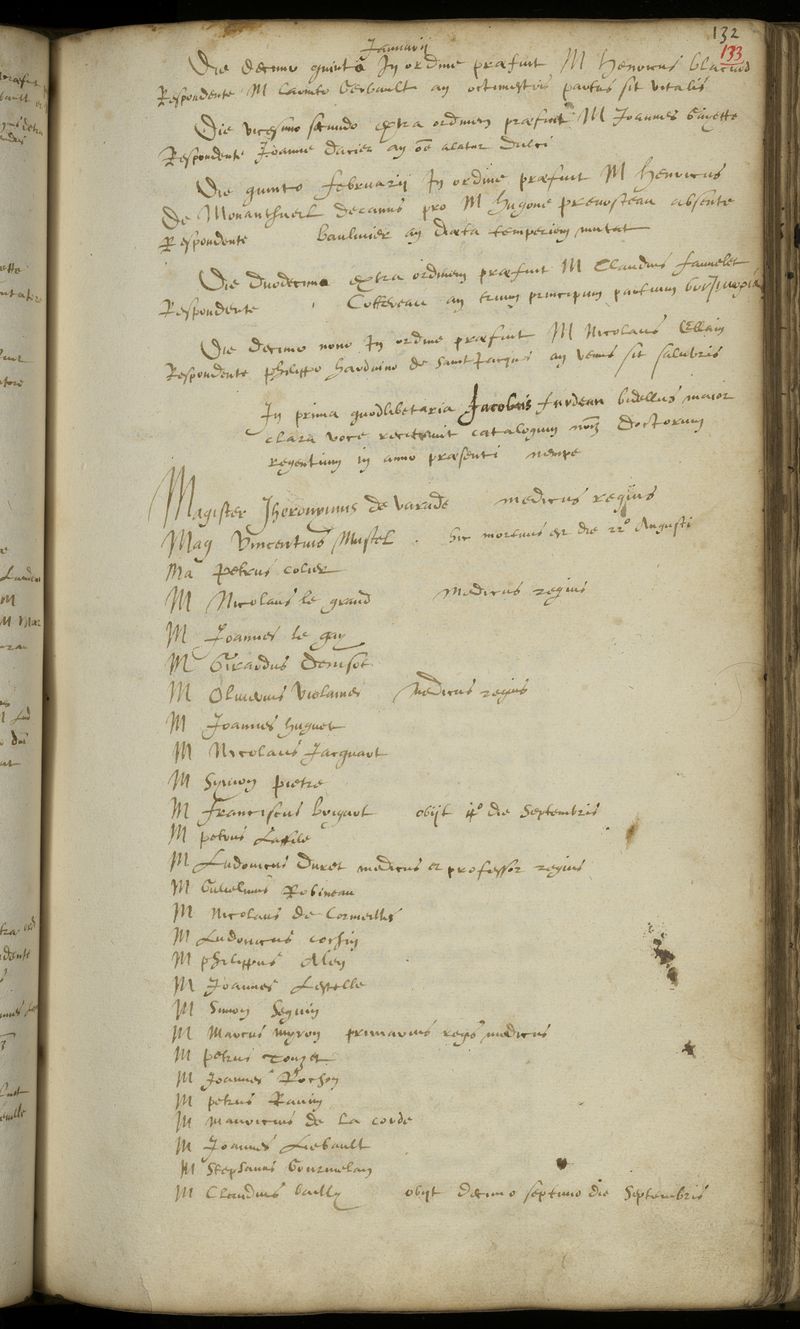 132
133
Januarij
Die decimo quinto In ordine præfuit M Henricus Blacuod
Respondente M Gerbault an octimestris partus sit vitalis
Die vicesimo secundo extra ordinem præfuit M Joannes
Respondente Joanne an
Die quinto februarij In ordine præfuit M Henricus
De Monantheuil decanus pro M Hugone prevosteau absente
Respondente Baulmier an diæta temperiem mutat
Die duodecimo extra ordinem præfuit M Claudius
Respondente an trium principum partium
Die decimo nono In ordine præfuit M Nicolaus Ellain
Respondente philippo Harduino de Saint Jacques an venus sit salubris
In prima quodlibetaria Jacobus bidellus maior
clara voce recitavit catalogum doctorum
regentium in anno præsenti nempe
Magister Jheronimus de varade medicus regius
Mag Vincentius Mustel . hic mortuus est die 22º Augusti
Ma petrus
M Nicolaus le grand medicus regius
M Joannes le gay
M Girardus Denisot
M Oliverius Violaines medicus regius
M Joannes huguet
M Nicolaus Jacquart
M Symon pietre
M Franciscus Brigart obijt die Septembris
M petrus Laffile
M Ludovicus Duret medicus et professor regius
M Guilelmus Robineau
M Nicolaus de Cormeilles
M Ludovicus
M philippus Aleu
M Joannes Lestelle
M Simon Seguin
M Marcus Myron primarius regis medicus
M petrus
M Joannes Rochon
M petrus Ravin
M Mauricius de La corde
M Joannes Liebault
M Stephanus Gourmelan
M Claudius bailly obijt decimo septimo die Septembris